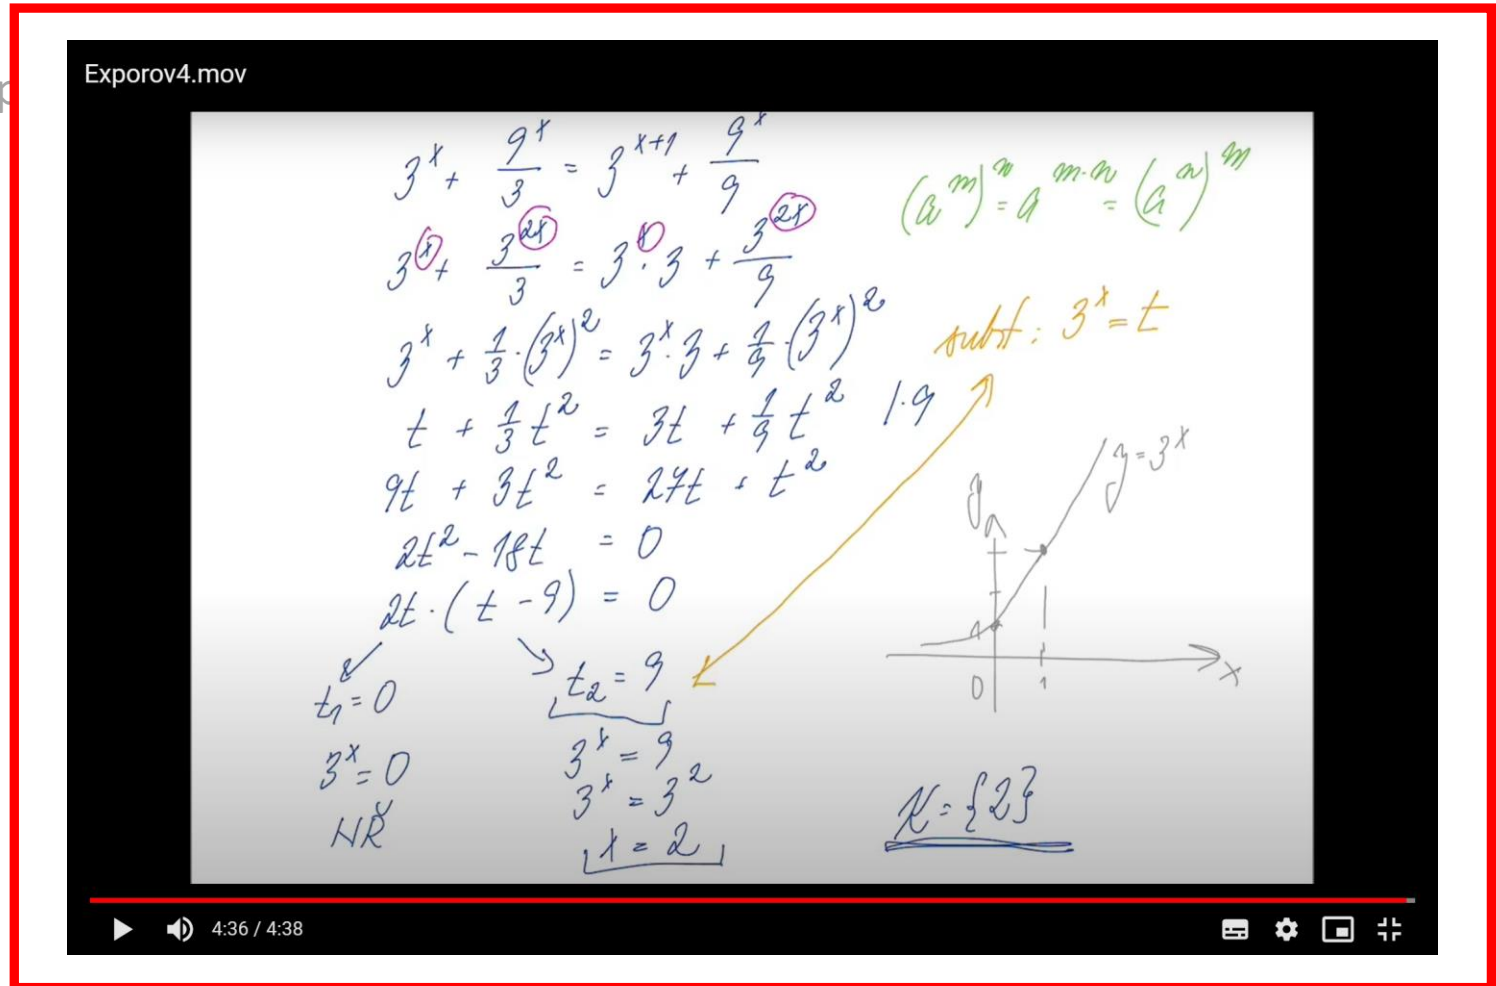 p
Exporov4.mov
3^x + 9^x/3 = 3^(x+1) + 9^x/9
(a^m)^n = a^(m·n) = (a^n)^m
3^x + 3^(2x)/3 = 3^x · 3 + 3^(2x)/9
3^x + 1/3 · (3^x)^2 = 3^x · 3 + 1/9 · (3^x)^2
subst: 3^x = t
t + 1/3 t^2 = 3t + 1/9 t^2 /·9
9t + 3t^2 = 27t + t^2
y = 3^x
y
2t^2 - 18t = 0
2t · (t - 9) = 0
1
0 1 x
t₁ = 0 t₂ = 9
3^x = 0 3^x = 9
3^x = 3^2
NŘ x = 2
K = {2}
4:36 / 4:38